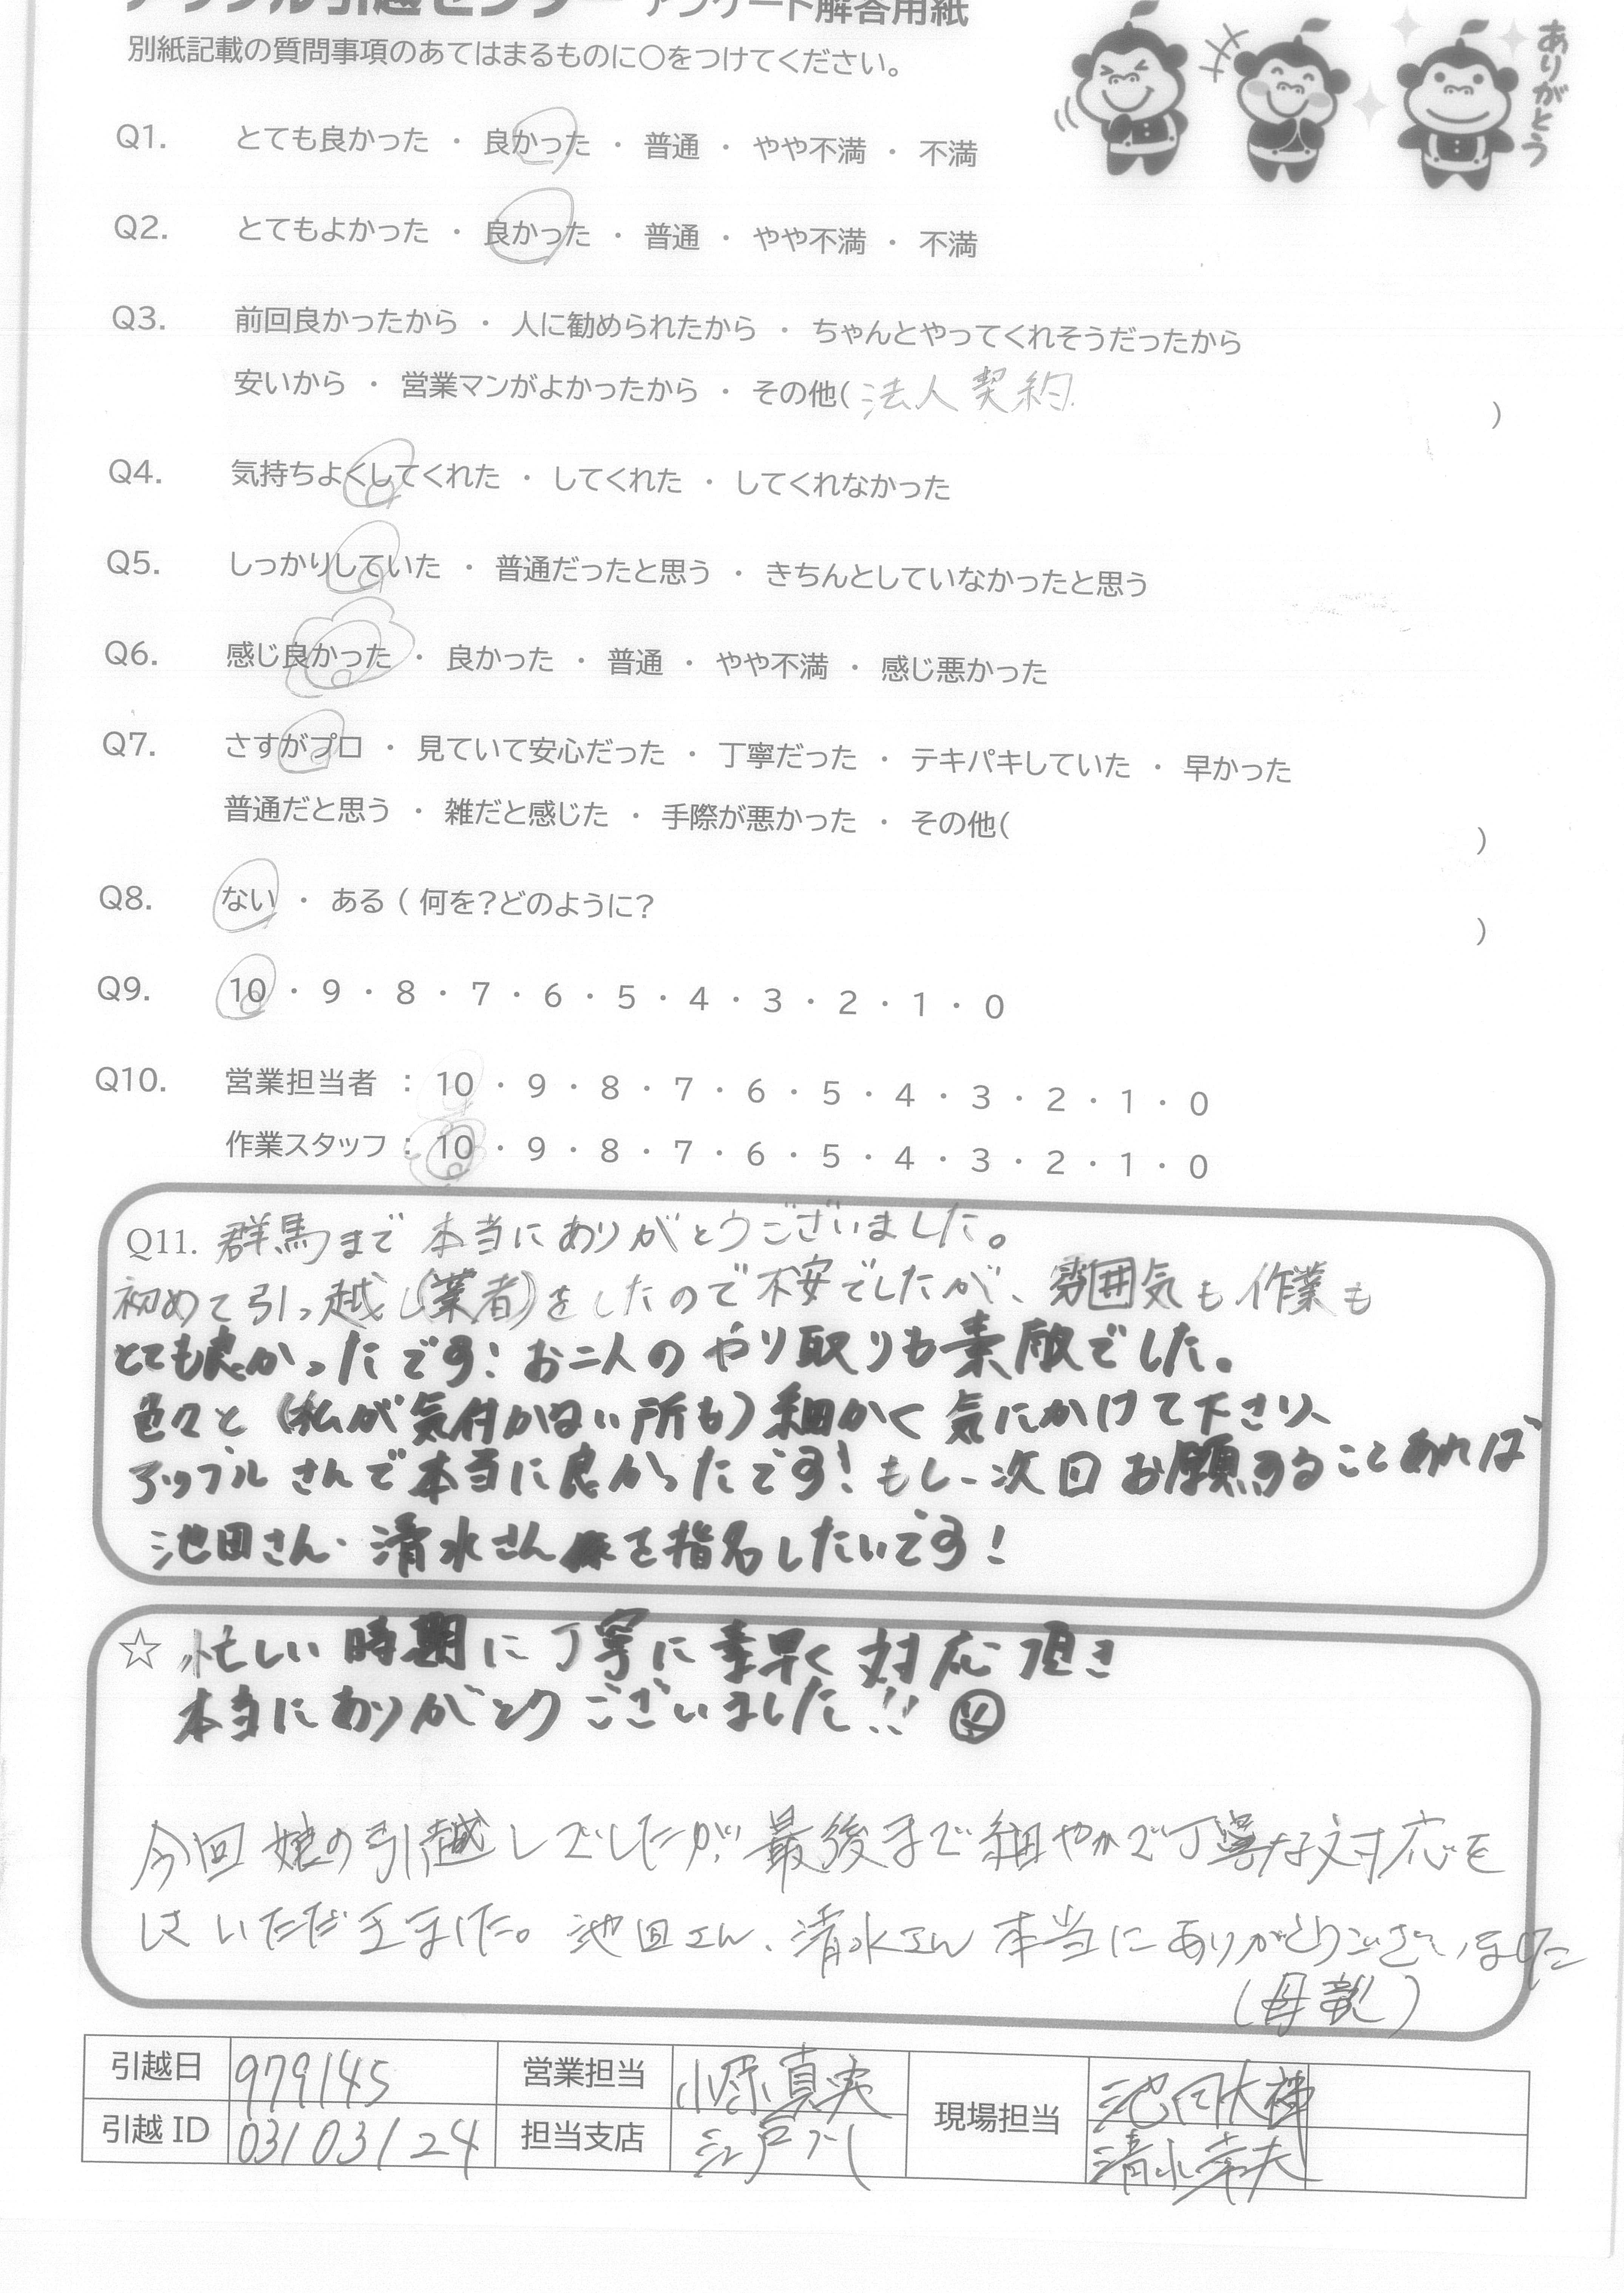 アップル引越センター アンケート解答用紙
別紙記載の質問事項のあてはまるものに○をつけてください。
ありがとう
Q1. とても良かった ・ 良かった ・ 普通 ・ やや不満 ・ 不満
Q2. とてもよかった ・ 良かった ・ 普通 ・ やや不満 ・ 不満
Q3. 前回良かったから ・ 人に勧められたから ・ ちゃんとやってくれそうだったから
安いから ・ 営業マンがよかったから ・ その他( 法人契約. )
Q4. 気持ちよくしてくれた ・ してくれた ・ してくれなかった
Q5. しっかりしていた ・ 普通だったと思う ・ きちんとしていなかったと思う
Q6. 感じ良かった ・ 良かった ・ 普通 ・ やや不満 ・ 感じ悪かった
Q7. さすがプロ ・ 見ていて安心だった ・ 丁寧だった ・ テキパキしていた ・ 早かった
普通だと思う ・ 雑だと感じた ・ 手際が悪かった ・ その他( )
Q8. ない ・ ある ( 何を?どのように? )
Q9. 10 ・ 9 ・ 8 ・ 7 ・ 6 ・ 5 ・ 4 ・ 3 ・ 2 ・ 1 ・ 0
Q10. 営業担当者 : 10 ・ 9 ・ 8 ・ 7 ・ 6 ・ 5 ・ 4 ・ 3 ・ 2 ・ 1 ・ 0
作業スタッフ : 10 ・ 9 ・ 8 ・ 7 ・ 6 ・ 5 ・ 4 ・ 3 ・ 2 ・ 1 ・ 0
Q11. 群馬まで 本当にありがとうございました。
初めて引っ越し(業者)をしたので不安でしたが、雰囲気も作業も
とても良かったです! お二人のやり取りも素敵でした。
色々と (私が気付かない所も) 細かく気にかけて下さり、
アップルさんで本当に良かったです! もし次回お願することあれば
池田さん・清水さんを指名したいです!
☆ 忙しい時期に丁寧に素早く対応頂き
本当にありがとうございました!!
今回娘の引越しでしたが、最後まで細やかで丁寧な対応を
していただきました。池田さん、清水さん本当にありがとうございました
(母親)
引越日 979145 営業担当 小原真実 現場担当 池田大禅
引越 ID 03103124 担当支店 江戸川 清水幸夫